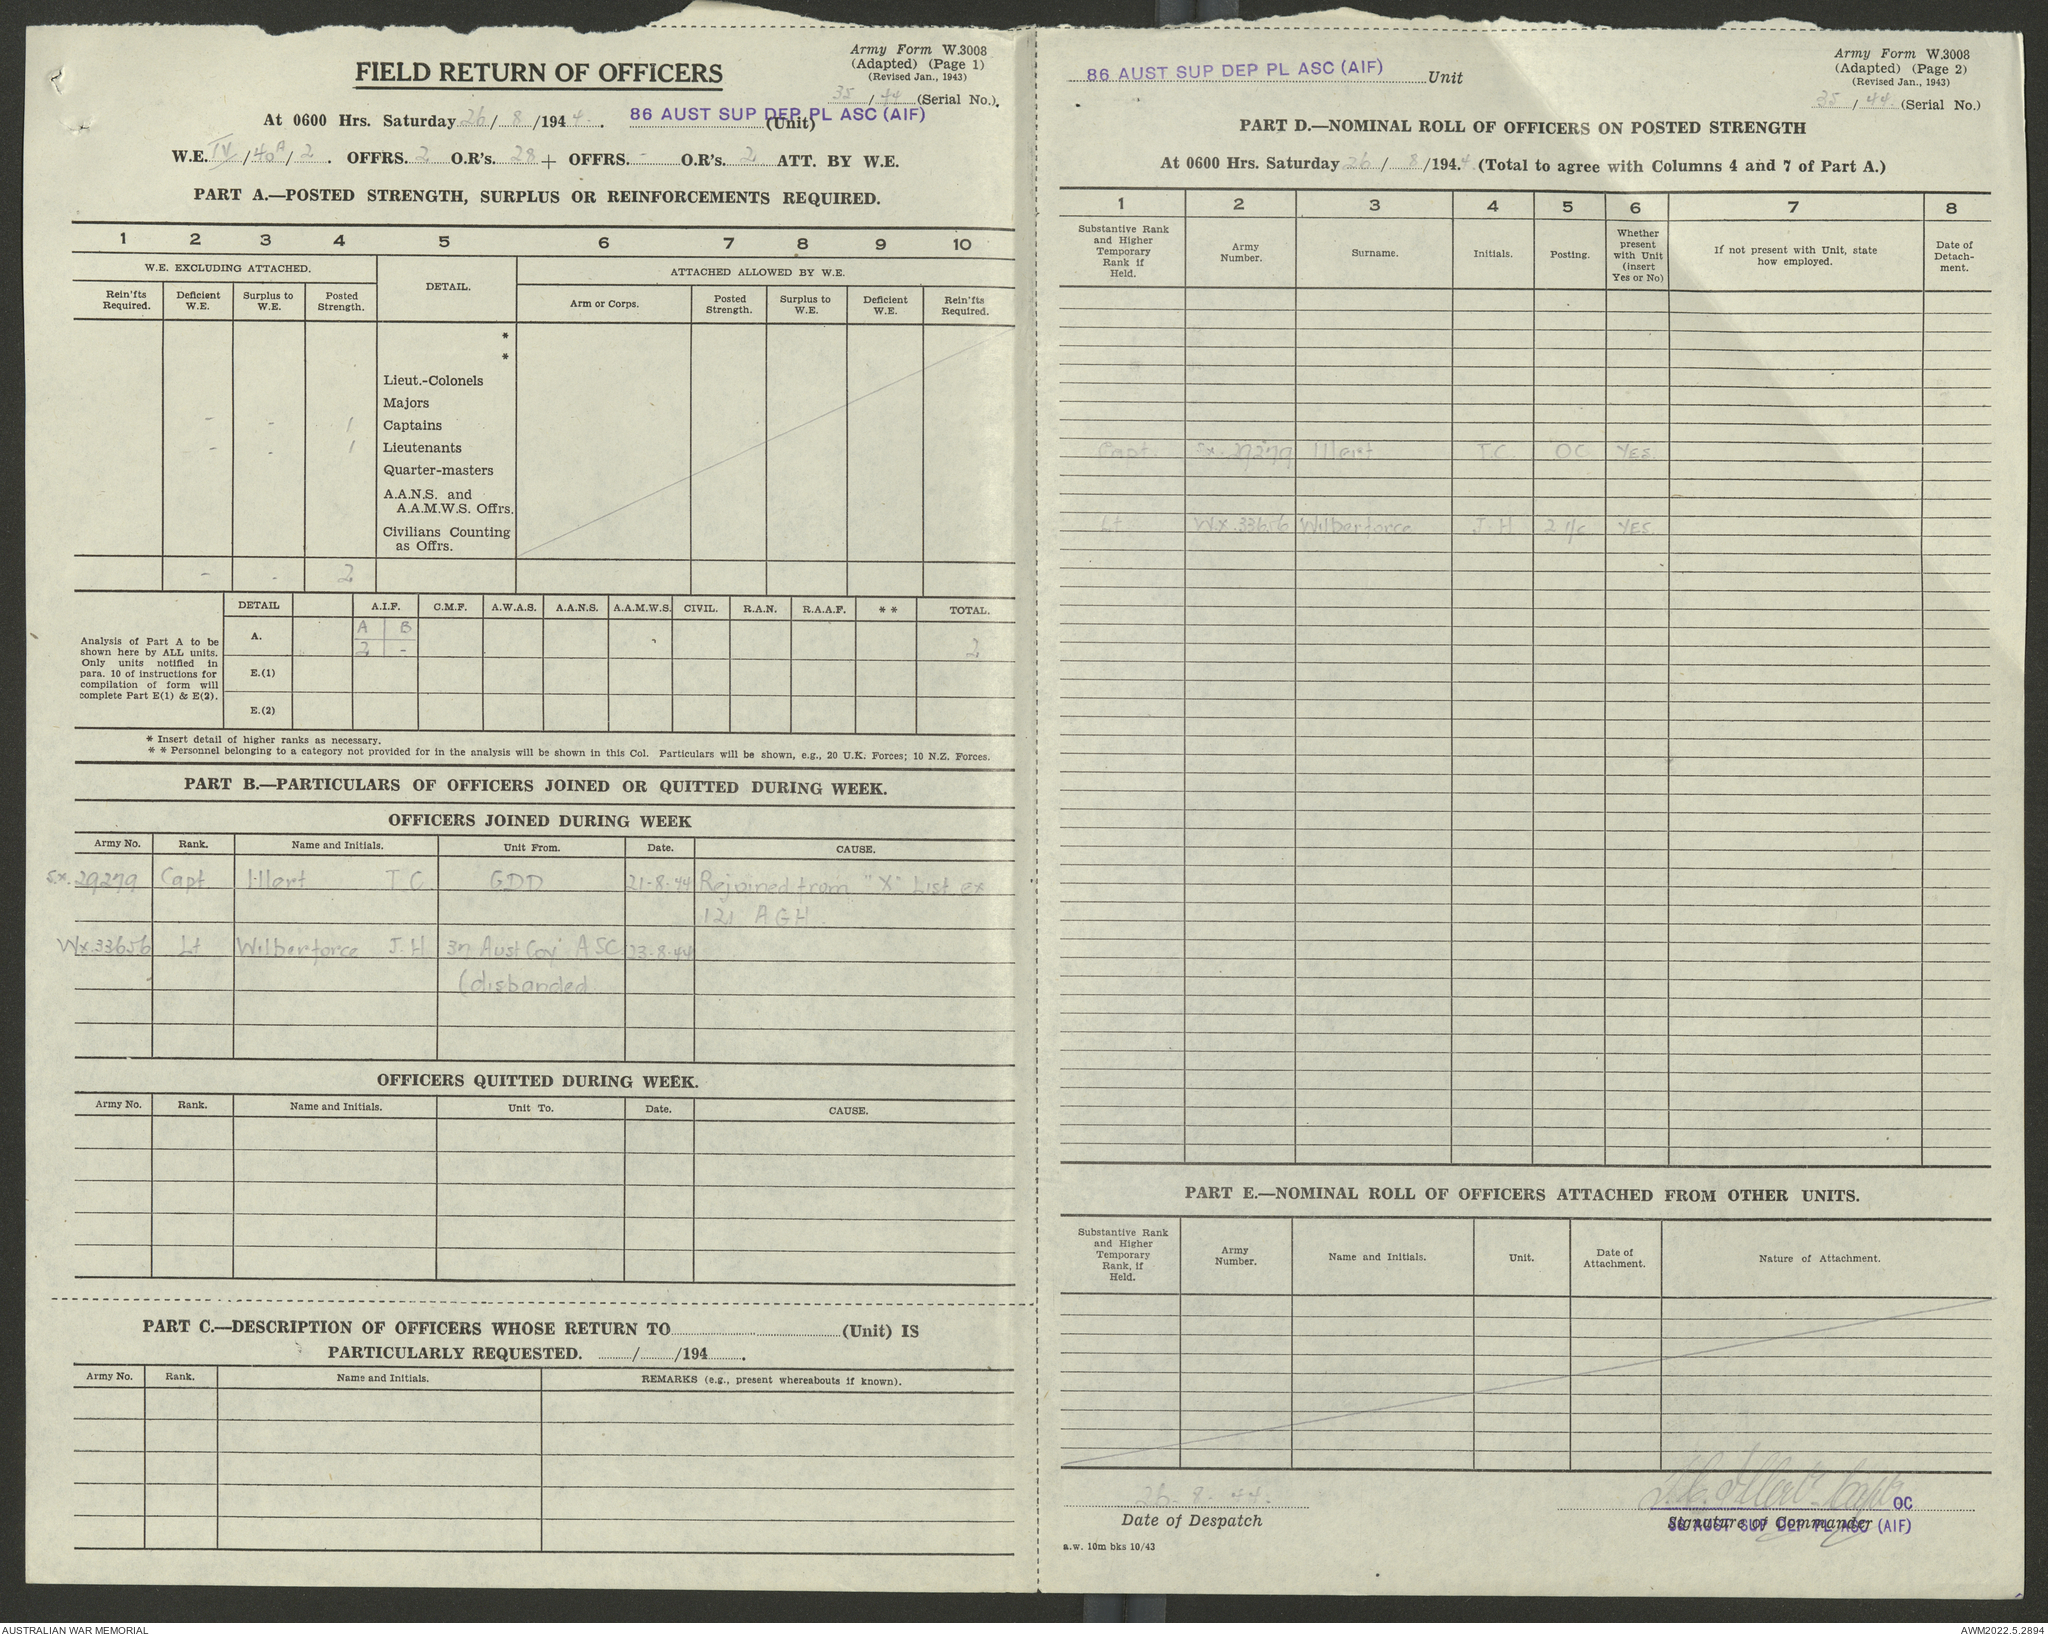 Army Form W.3008
(Adapted) (Page 1)
(Revised Jan., 1943)
FIELD RETURN OF OFFICERS
35/44 (Serial No.).
At 0600 Hrs. Saturday 26/8/1944. 86 AUST SUP DEP PL ASC (AIF) (Unit)
W.E. IV/40A/2. OFFRS. 2 O.R's. 28 + OFFRS. - O.R's. 2 ATT. BY W.E.
PART A.—POSTED STRENGTH, SURPLUS OR REINFORCEMENTS REQUIRED.
1 2 3 4 5 6 7 8 9 10
W.E. EXCLUDING ATTACHED. DETAIL. ATTACHED ALLOWED BY W.E.
Rein'fts Required. Deficient W.E. Surplus to W.E. Posted Strength. Arm or Corps. Posted Strength. Surplus to W.E. Deficient W.E. Rein'fts Required.
*
*
Lieut.-Colonels
Majors
- - 1 Captains
- - 1 Lieutenants
Quarter-masters
A.A.N.S. and
A.A.M.W.S. Offrs.
Civilians Counting
as Offrs.
- - 2
Analysis of Part A to be
shown here by ALL units.
Only units notified in
para. 10 of instructions for
compilation of form will
complete Part E(1) & E(2).
DETAIL A.I.F. C.M.F. A.W.A.S. A.A.N.S. A.A.M.W.S. CIVIL. R.A.N. R.A.A.F. * * TOTAL.
A. A B
2 - 2
E.(1)
E.(2)
* Insert detail of higher ranks as necessary.
* * Personnel belonging to a category not provided for in the analysis will be shown in this Col. Particulars will be shown, e.g., 20 U.K. Forces; 10 N.Z. Forces.
PART B.—PARTICULARS OF OFFICERS JOINED OR QUITTED DURING WEEK.
OFFICERS JOINED DURING WEEK
Army No. Rank. Name and Initials. Unit From. Date. CAUSE.
S.X. 29279 Capt Illert T C GDD 21-8-44 Rejoined from "X" List ex
121 AGH
WX.33656 Lt Wilberforce J.H Aust Coy ASC 23-8-44
(disbanded
OFFICERS QUITTED DURING WEEK.
Army No. Rank. Name and Initials. Unit To. Date. CAUSE.
PART C.—DESCRIPTION OF OFFICERS WHOSE RETURN TO (Unit) IS
PARTICULARLY REQUESTED. / /194 .
Army No. Rank. Name and Initials. REMARKS (e.g., present whereabouts if known).
Army Form W.3008
(Adapted) (Page 2)
(Revised Jan., 1943)
86 AUST SUP DEP PL ASC (AIF) Unit
35/44 (Serial No.)
PART D.—NOMINAL ROLL OF OFFICERS ON POSTED STRENGTH
At 0600 Hrs. Saturday 26/8/1944 (Total to agree with Columns 4 and 7 of Part A.)
1 2 3 4 5 6 7 8
Substantive Rank and Higher Temporary Rank if Held. Army Number. Surname. Initials. Posting. Whether present with Unit (insert Yes or No) If not present with Unit, state how employed. Date of Detach-ment.
Capt. SX.29279 Illert T.C. OC YES.
Lt WX.33656 Wilberforce J.H 2 I/C YES.
PART E.—NOMINAL ROLL OF OFFICERS ATTACHED FROM OTHER UNITS.
Substantive Rank and Higher Temporary Rank, if Held. Army Number. Name and Initials. Unit. Date of Attachment. Nature of Attachment.
26-8-44.
Date of Despatch
T.C. Illert Capt OC
Signature of Commander
86 AUST SUP DEP PL ASC (AIF)
a.w. 10m bks 10/43
AUSTRALIAN WAR MEMORIAL
AWM2022.5.2894